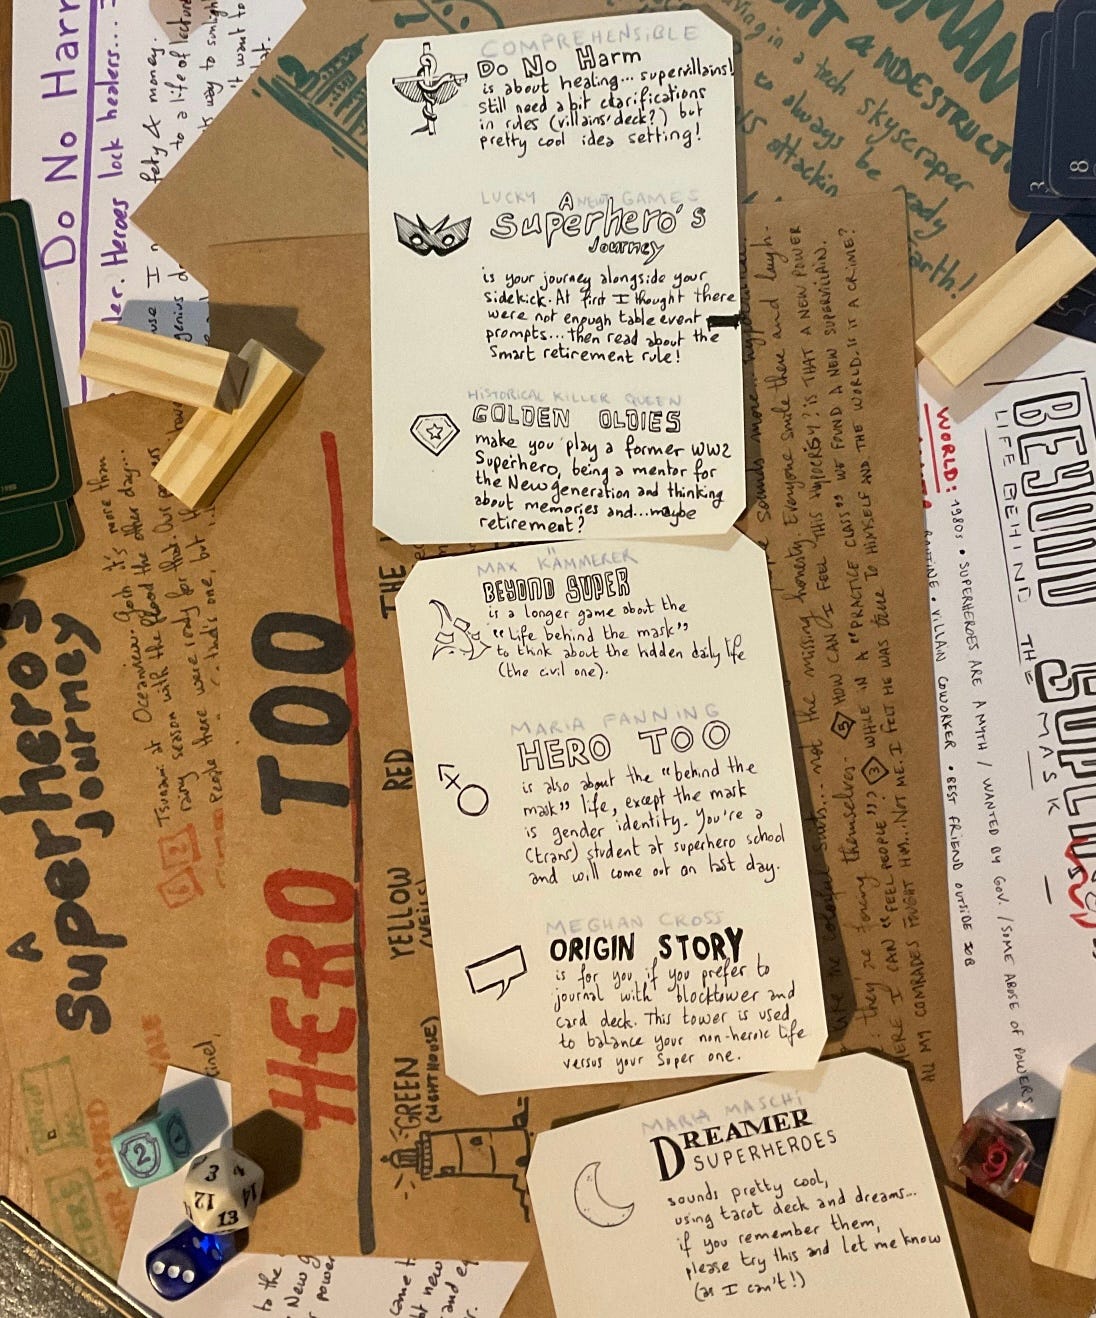 COMPREHENSIBLE
Do No Harm
is about healing... supervillains!
still need a bit clarifications
in rules (villains' deck?) but
pretty cool idea setting!
LUCKY NEWT GAMES
A
Superhero's
Journey
is your journey alongside your
sidekick. At first I thought there
were not enough table event
prompts... then read about the
Smart retirement rule!
HISTORICAL KILLER QUEEN
GOLDEN OLDIES
make you play a former WW2
Superhero, being a mentor for
the New generation and thinking
about memories and...maybe
retirement?
MAX KÄMMERER
BEYOND SUPER
is a longer game about the
"life behind the mask"
to think about the hidden daily life
(the civil one).
MARIA FANNING
HERO TOO
is also about the "behind the
mask" life, except the mask
is gender identity. You're a
(trans) student at superhero school
and will come out on last day.
MEGHAN CROSS
ORIGIN STORY
is for you if you prefer to
journal with blocktower and
card deck. This tower is used
to balance your non-heroic life
versus your Super one.
MARIA MASCHI
DREAMER
SUPERHEROES
sounds pretty cool,
using tarot deck and dreams...
if you remember them,
please try this and let me know
(as I can't!)
Do No Harm
Heroes lock healers...
fety & money.
to a life of lecture
way to sunligh
want to
HUMAN
in a tech skyscraper
to always be ready
attackin
arth!
3
8
A
Superhero's
Journey
6 2
Tsunami at Oceanview. Goth it's more than
rainy season with the flood the other day...
People there were ready for that. Our
HERO TOO
THE
RED
YELLOW
GREEN
(LIGHTHOUSE)
sounds more
not the missing honesty. Everyone smile there and laugh.
they're forcing themselves. 5 HOW CAN I FEEL THIS HYPOCRISY? IS THAT A NEW POWER
WHERE I CAN "FEEL PEOPLE"? 3 WHILE IN A "PRACTICE CLASS" WE FOUND A NEW SUPERVILLAIN.
ALL MY COMRADES FOUGHT HIM... NOT ME. I FELT HE WAS TRUE TO HIMSELF AND THE WORLD. IS IT A CRIME?
BEYOND SUPER
LIFE BEHIND THE MASK
WORLD: 1980s • SUPERHEROES ARE A MYTH / WANTED BY GOV. / SOME ABUSE OF POWERS
ROUTINE • VILLAN COWORKER • BEST FRIEND OUTSIDE JOB
2
3
4
12
14
13
to the
New g
power
came t
new
and e